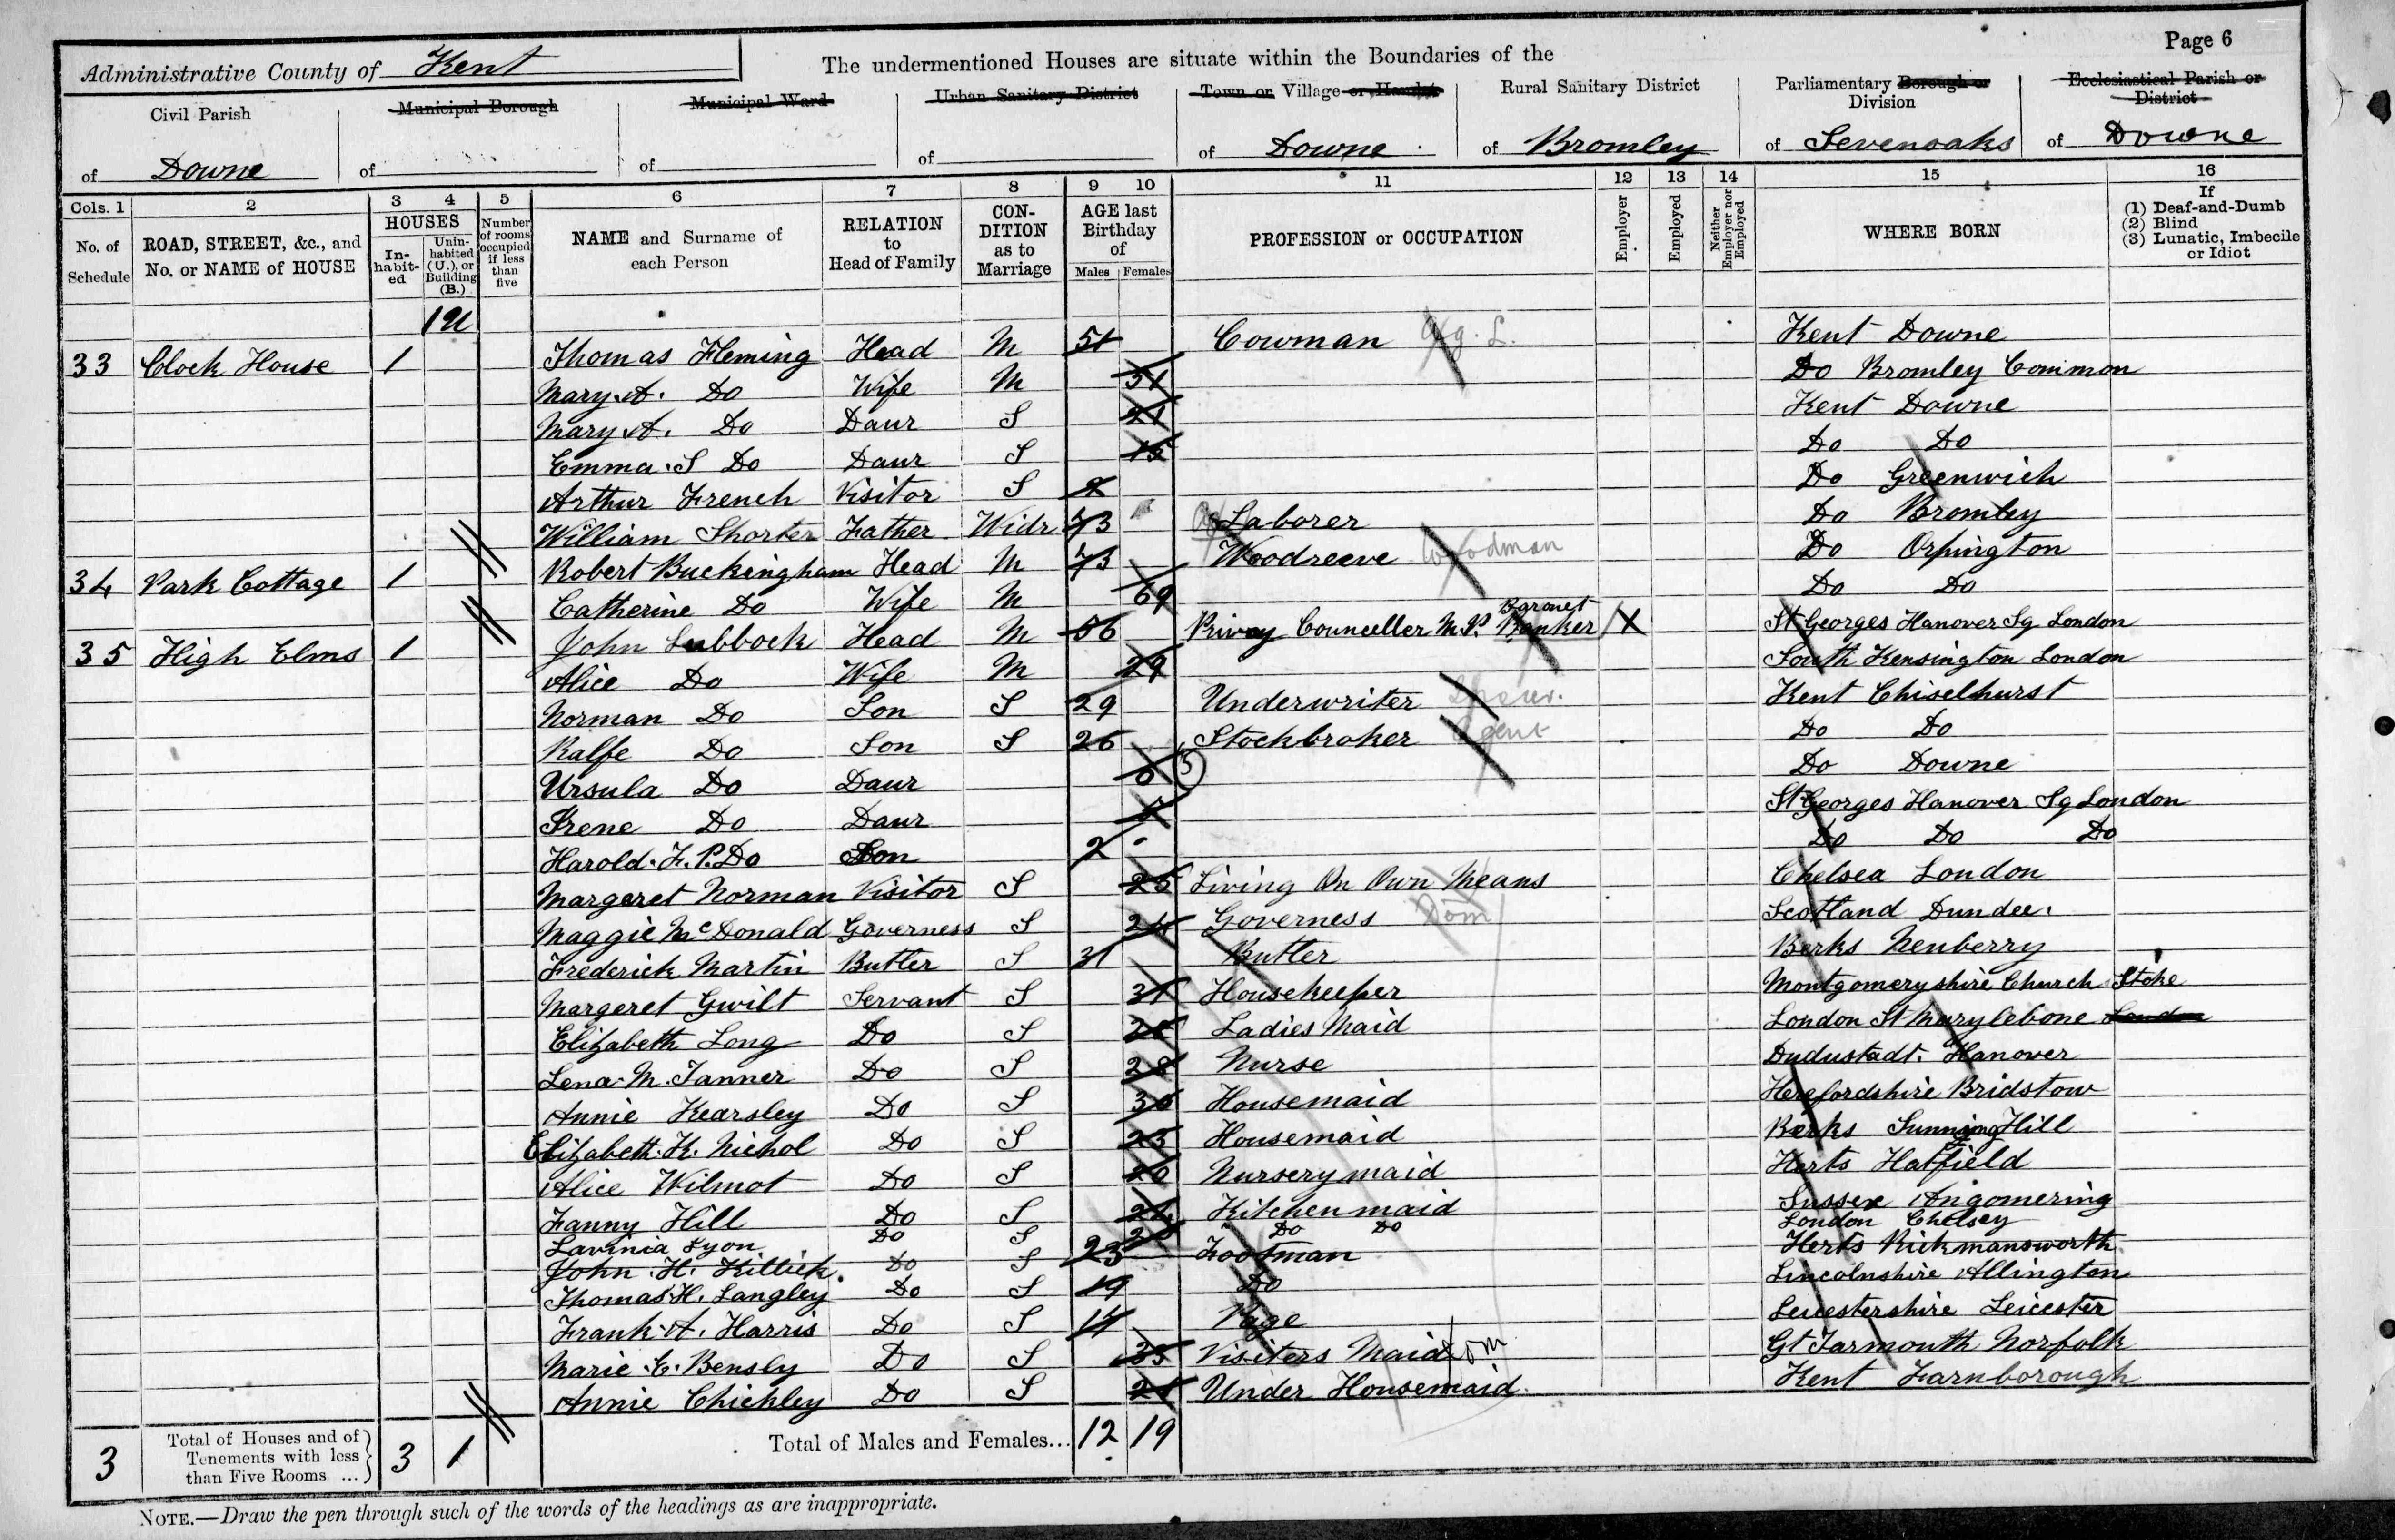 Page 6
Administrative County of Kent
The undermentioned Houses are situate within the Boundaries of the
Civil Parish of Downe
Municipal Borough of
Municipal Ward of
Urban Sanitary District of
Town or Village or Hamlet of Downe
Rural Sanitary District of Bromley
Parliamentary Borough or Division of Sevenoaks
Ecclesiastical Parish or District of Downe
Cols. 1 2 3 4 5 6 7 8 9 10 11 12 13 14 15 16
No. of Schedule
ROAD, STREET, &c., and No. or NAME of HOUSE
HOUSES
In-habit-ed
Unin-habited (U.), or Building (B.)
Number of rooms occupied if less than five
NAME and Surname of each Person
RELATION to Head of Family
CON-DITION as to Marriage
AGE last Birthday of
Males Females
PROFESSION or OCCUPATION
Employer
Employed
Neither Employer nor Employed
WHERE BORN
If
(1) Deaf-and-Dumb
(2) Blind
(3) Lunatic, Imbecile or Idiot
1U
33 Clock House 1 Thomas Fleming Head M 51 Cowman Ag. L. Kent Downe
Mary A. Do Wife M 51 Do Bromley Common
Mary A. Do Daur S 21 Kent Downe
Emma S Do Daur S 15 Do Do
Arthur French Visitor S Do Greenwich
William Shorter Father Widr 73 Ag Laborer Do Bromley
34 Park Cottage 1 Robert Buckingham Head M 73 Woodreeve Woodman Do Orpington
Catherine Do Wife M 69 Do Do
35 High Elms 1 John Lubbock Head M 56 Privay Counceller M.P. Baronet Banker X St Georges Hanover Sq London
Alice Do Wife M 29 South Kensington London
Norman Do Son S 29 Underwriter Kent Chiselhurst
Ralfe Do Son S 26 Stockbroker Agent Do Do
Ursula Do Daur 5 Do Downe
Irene Do Daur St Georges Hanover Sq London
Harold F. P. Do Son 2 Do Do Do
Margeret Norman Visitor S 25 Living On Own Means Chelsea London
Maggie McDonald Governess S 24 Governess Dom Scotland Dundee.
Frederick Martin Butler S 31 Butler Berks Neuberry
Margeret Gwilt Servant S 31 Housekeeper Montgomeryshire Church Stoke
Elizabeth Long Do S Ladies Maid London St Marylebone London
Lena M. Tanner Do S 28 Nurse Dudustadt. Hanover
Annie Kearsley Do S 30 Housemaid Herefordshire Bridstow
Elizabeth K. Nichol Do S 23 Housemaid Berks Sunning Hill
Alice Wilmot Do S 20 Nursery maid Herts Hatfield
Fanny Hill Do S Kitchen maid Sussex Angomering
Lavinia Lyon Do S Do Do London Chelsey
John H. Killick. Do S 23 Footman Herts Rickmansworth
Thomas H. Langley Do S 19 Do Lincolnshire Allington
Frank A. Harris Do S Page Leicestershire Leicester
Marie E. Bensly Do S 35 Visiters Maid Dom Gt Yarmouth Norfolk
Annie Chickley Do S 21 Under Housemaid. Kent Farnborough
3 Total of Houses and of Tenements with less than Five Rooms ... 3 1 Total of Males and Females... 12 19
NOTE.—Draw the pen through such of the words of the headings as are inappropriate.